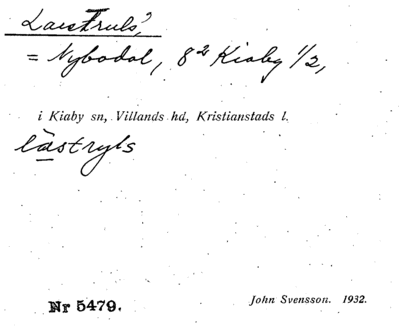 Laestruls,
= Nybodal, 8² Kiaby 1/2,
i Kiaby sn, Villands hd, Kristianstads l.
lästryls
Nr 5479.
John Svensson. 1932.